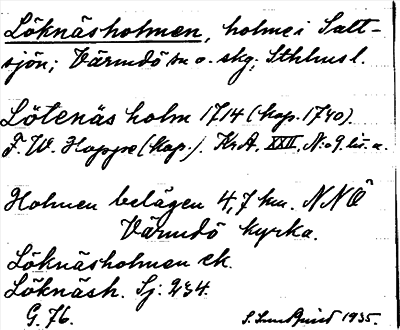 Löknäsholmen, holme i Salt-
sjön; Värmdö sn o. skg; Sthlms l.
Lötenäs holm 1714 (kop. 1740).
F. W. Hoppe (kop.). KrA, XXII, N:o 9 lit. a.
Holmen belägen 4,7 km. NNÖ
Värmdö kyrka.
Löknäsholmen ek.
Löknäsh. Sj: 234.
G. 76.
S. Sundquist 1935.